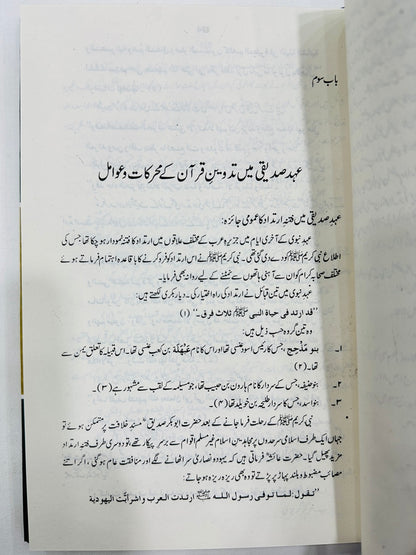 باب سوم
عہد صدیقی میں تدوین قرآن کے محرکات و عوامل
عہد صدیقی میں فتنۂ ارتداد کا عمومی جائزہ:
عہد نبوی کے آخری ایام میں جزیرہ عرب کے مختلف علاقوں میں ارتداد کا فتنہ نمودار ہو چکا تھا جس کی
اطلاع نبی کریم ﷺ کو دے دی گئی تھی۔ نبی کریم ﷺ نے اس فتنہ ارتداد کو فرو کرنے کا باقاعدہ اہتمام فرماتے ہوئے
مختلف صحابہ کرام کو ان سے آہنی ہاتھوں سے نمٹنے کے لیے روانہ بھی فرمایا۔
عہد نبوی میں تین قبائل نے ارتداد کی راہ اختیار کی۔ دیار بکری لکھتے ہیں:
”قد ارتد فی حیاة النبی ﷺ ثلاث فرق۔“ (۱)
وہ تین گروہ حسب ذیل ہیں:
۱۔ بنو مذحج، جس کا رئیس اسود عنسی تھا اور اس کا نام عَبْهَلَة بن کعب عنسی تھا۔ اس قبیلہ کا تعلق یمن سے
تھا۔ (۲)
۲۔ بنو حنیفہ، جس کے سردار کا نام ہارون بن حبیب تھا، جو مسیلمہ کے لقب سے مشہور ہے (۳)۔
۳۔ بنو اسد، جس کا سردار طلیحہ بن خویلد تھا (۴)۔
نبی کریم ﷺ کے رحلت فرما جانے کے بعد حضرت ابوبکر صدیق مسند خلافت پر متمکن ہوئے تو
جہاں ایک طرف اسلامی سرحدوں پر مجاہدین اسلام غیر مسلم اقوام سے برسر پیکار تھے، تو دوسری طرف فتنہ ارتداد
مزید پھیل گیا۔ حضرت عائشہ فرماتی ہیں کہ یہود و نصاریٰ سر اٹھانے لگے اور منافقت عام ہو گئی، اگر اتنے
مصائب مضبوط و بلند پہاڑ پر پڑتے تو وہ بھی ریزہ ریزہ ہو جاتے:
”تقول: لما توفی رسول الله ﷺ ارتدت العرب واشرأبّت الیهودیة